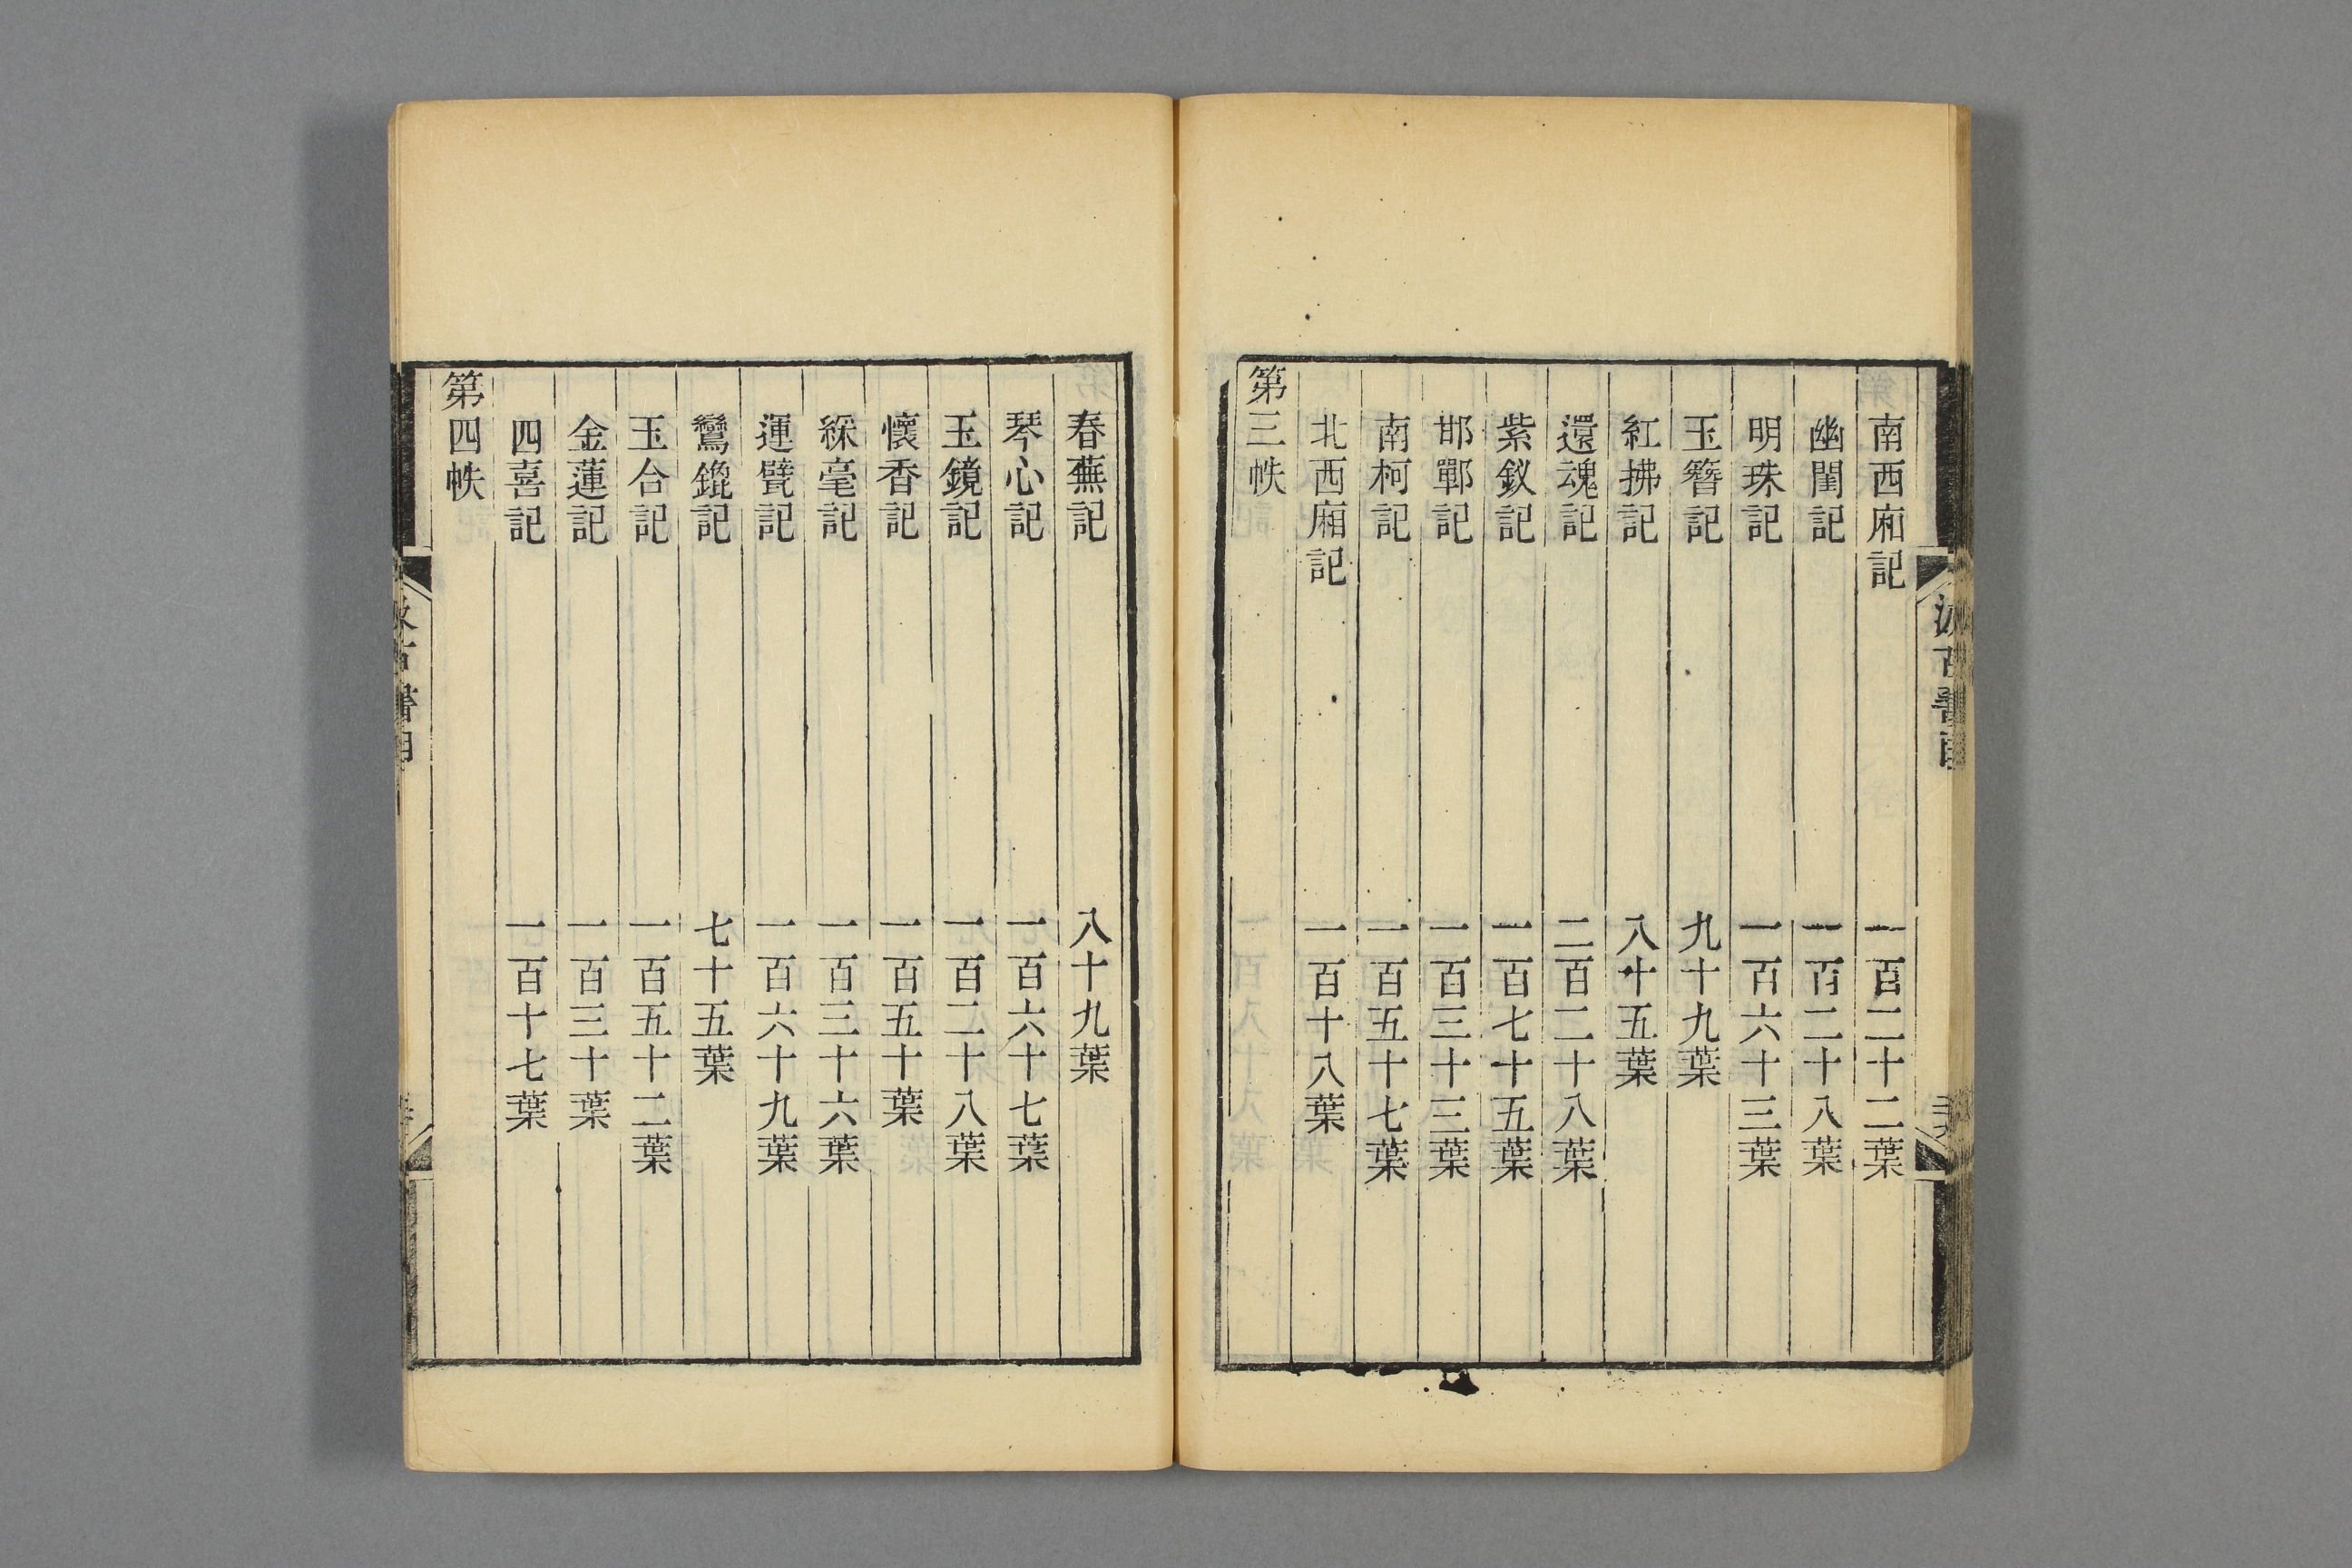 南西廂記 一百二十二葉
幽閨記 一百二十八葉
明珠記 一百六十三葉
玉簪記 九十九葉
紅拂記 八十五葉
還魂記 二百二十八葉
紫釵記 一百七十五葉
邯鄲記 一百三十三葉
南柯記 一百五十七葉
北西廂記 一百十八葉
第三帙
春蕪記 八十九葉
琴心記 一百六十七葉
玉鏡記 一百二十八葉
懷香記 一百五十葉
綵毫記 一百三十六葉
運甓記 一百六十九葉
鸞鎞記 七十五葉
玉合記 一百五十二葉
金蓮記 一百三十葉
四喜記 一百十七葉
第四帙